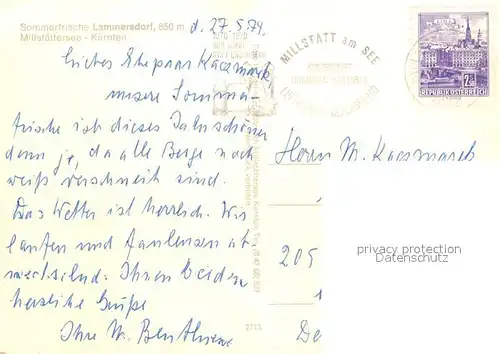 Sommerfrische Lammersdorf, 856 m
Millstättersee - Kärnten
d. 27.5.74.
Liebes Ehepaar Kaczmarek
unsere Somme-
frische ist dieses Jahr schöner
denn je, da alle Berge noch
weiß verschneit sind.
Das Wetter ist herrlich. Wir
laufen und faulenzen ab-
wechselnd. Ihnen beiden
herzliche Grüße
Ihre M.
MILLSTATT am SEE
REPUBLIK ÖSTERREICH
Herrn M. Kaczmarek
privacy protection
Datenschutz
205
2713
De